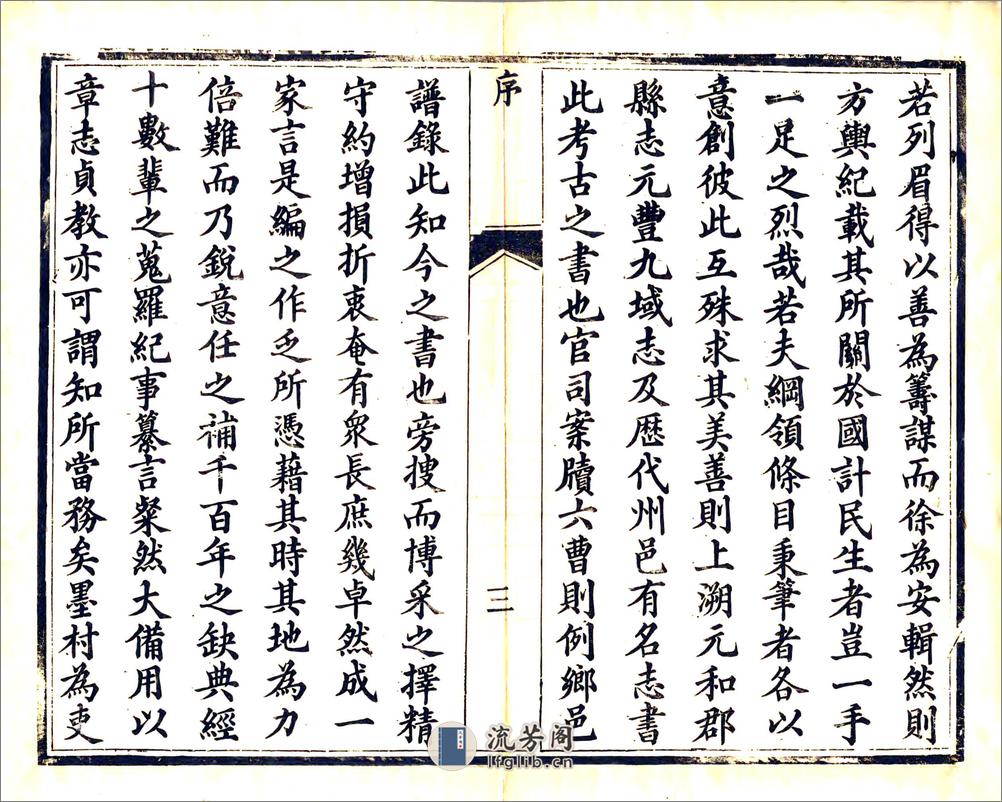 若列眉得以善為籌謀而徐為安輯然則
方輿紀載其所關於國計民生者豈一手
一足之烈哉若夫綱領條目秉筆者各以
意創彼此互殊求其美善則上溯元和郡
縣志元豐九域志及歷代州邑有名志書
此考古之書也官司案牘六曹則例鄉邑
序
三
譜錄此知今之書也旁搜而博采之擇精
守約增損折衷奄有眾長庶幾卓然成一
家言是編之作乏所憑藉其時其地為力
倍難而乃銳意任之補千百年之缺典經
十數輩之蒐羅紀事纂言粲然大備用以
章志貞教亦可謂知所當務矣墨村為吏
流芳阁
lfglib.cn